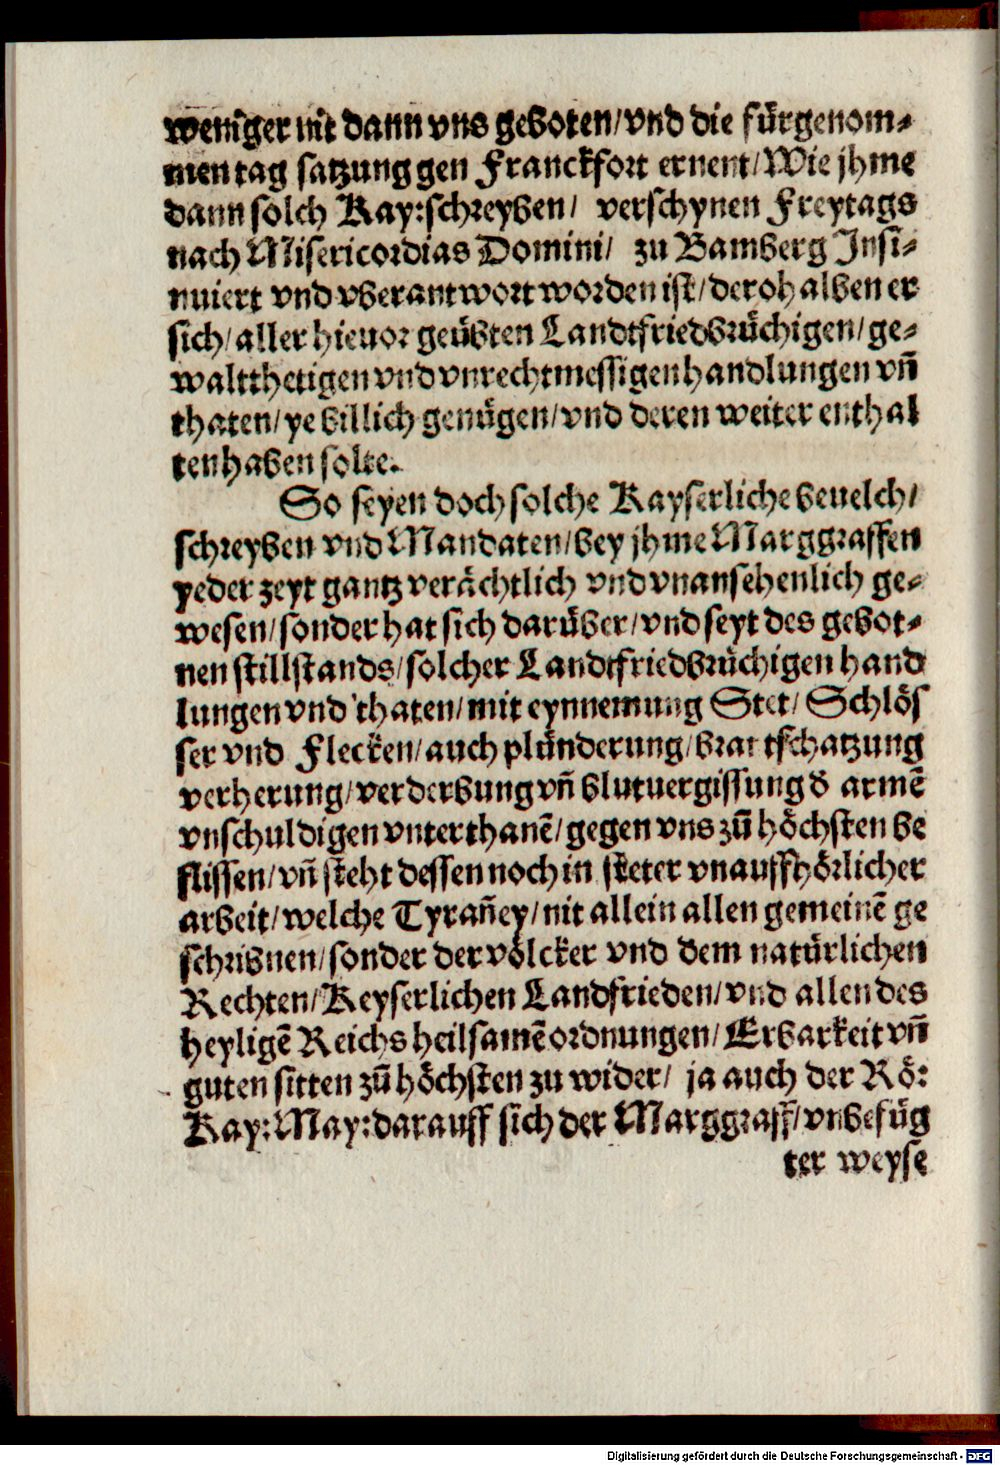 weniger nit dann vns geboten/vnd die fürgenom-
men tag satzung gen Franckfort ernent/Wie jhme
dann solch Kay:schreyben/ verschynen Freytags
nach Misericordias Domini/ zu Bamberg Insi-
nuiert vnd vberantwort worden ist/derohalben er
sich/aller hieuor geübten Landtfriedbrüchigen/ge-
waltthetigen vnd vnrechtmessigen handlungen vn̄
thaten/ye billich genügen/vnd deren weiter enthal
ten haben solte.
So seyen doch solche Kayserliche beuelch/
schreyben vnd Mandaten/bey jhme Marggraffen
yeder zeyt gantz verächtlich vnd vnansehenlich ge-
wesen/sonder hat sich darüber/vnd seyt des gebot-
nen stillstands/solcher Landtfriedbrüchigen hand
lungen vnd thaten/mit eynnemung Stet/Schlös
ser vnd Flecken/auch plünderung/brantschatzung
verherung/verderbung vn̄ blutuergissung d̄ armē
vnschuldigen vnterthanē/gegen vns zū höchsten be
flissen/vn̄ steht dessen noch in steter vnauffhörlicher
arbeit/welche Tyrañey/nit allein allen gemeinē ge
schribnen/sonder der völcker vnd dem natürlichen
Rechten/Keyserlichen Landfrieden/vnd allen des
heyligē Reichs heilsamē ordnungen/Erbarkeit vn̄
guten sitten zū höchsten zu wider/ ja auch der Rö:
Kay:May:darauff sich der Marggraff/vnbefüg
ter weyse
Digitalisierung gefördert durch die Deutsche Forschungsgemeinschaft - DFG